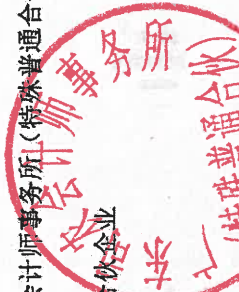 会计师事务所（特殊普通合
伙企业
会计师事务所
（特殊普通合伙）